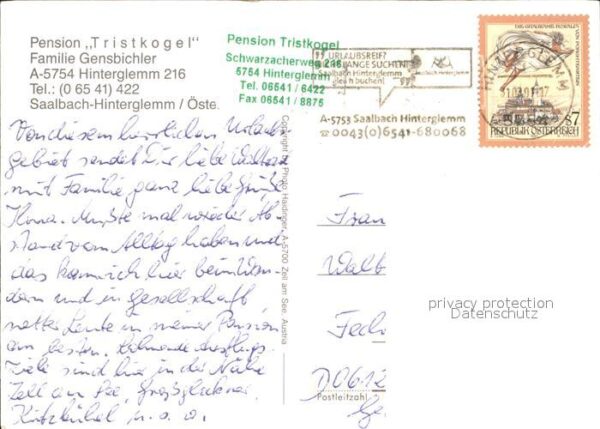 Pension „Tristkogel"
Familie Gensbichler
A-5754 Hinterglemm 216
Tel.: (0 65 41) 422
Saalbach-Hinterglemm / Öste.
Pension Tristkogel
Schwarzacherweg 216
5754 Hinterglemm
Tel. 06541 / 6422
Fax 06541 / 8875
URLAUBSREIF?
LANGE SUCHEN
Saalbach Hinterglemm
gleich buchen!
A-5753 Saalbach Hinterglemm
☎0043(0)6541-680068
HINTERGLEMM
S7
REPUBLIK ÖSTERREICH
Von diesem herrlichen Urlaubs
gebiet sendet Dir liebe
mit Familie ganz liebe Grüße
Mußte mal wieder Ab-
stand vom Alltag haben und
das kann ich hier beim Wan-
dern und in Gesellschaft
netter Leute in meiner Pension
am besten. Lohnende Ausflugs-
ziele sind hier in der Nähe
Zell am See, Großglockner,
Kitzbühel u.s.w.
Copyright Photo Haidinger, A-5700 Zell am See, Austria
Frau
Walt
Fed
D0612
Postleitzahl
Ge
privacy protection
Datenschutz